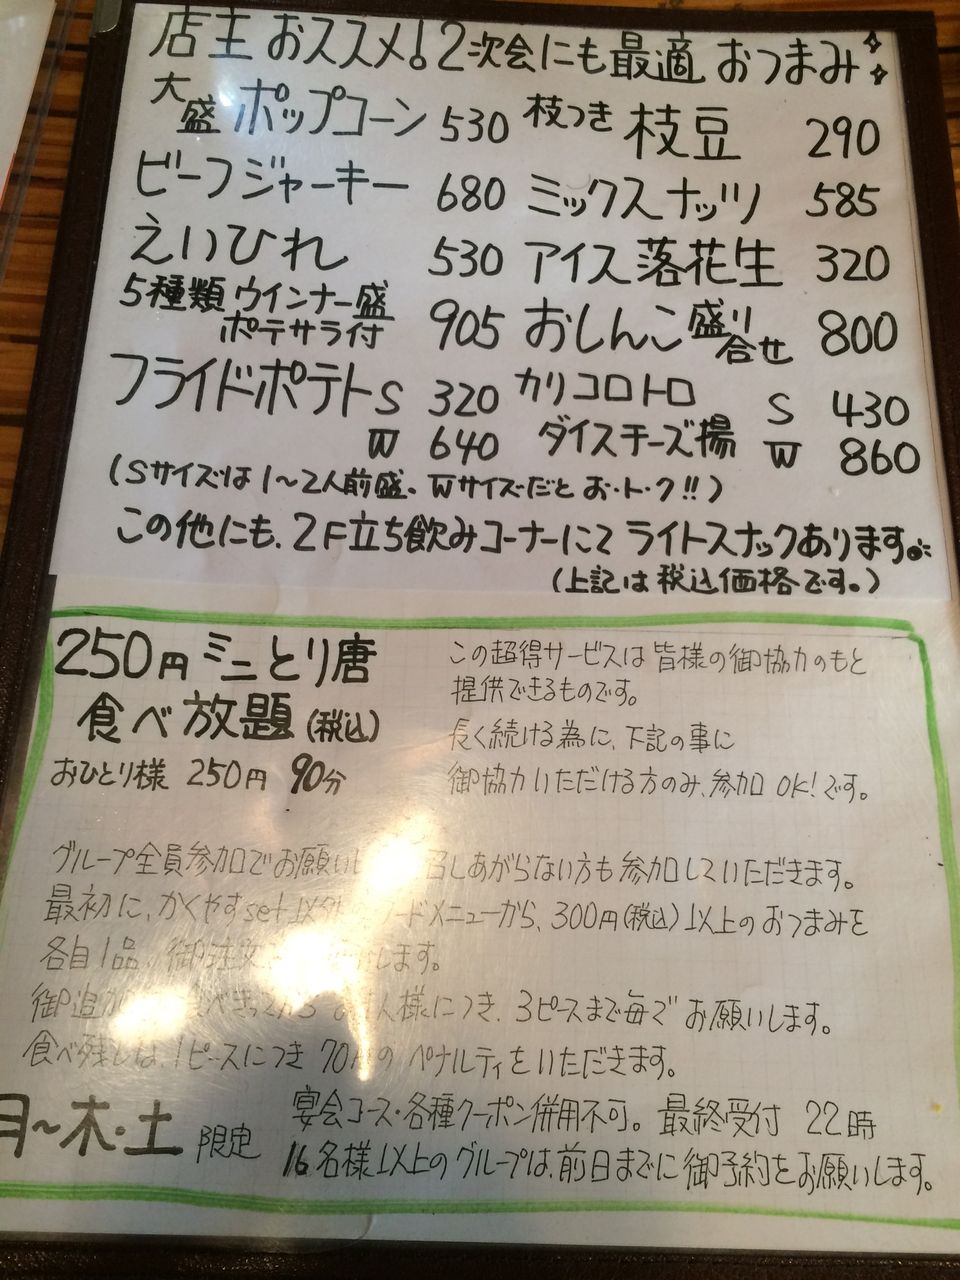 店主おススメ!2次会にも最適 おつまみ
大盛 ポップコーン 530 枝つき 枝豆 290
ビーフジャーキー 680 ミックスナッツ 585
えいひれ 530 アイス落花生 320
5種類 ウインナー盛 ポテサラ付 905 おしんこ盛り合せ 800
フライドポテト S 320 カリコロトロ S 430
W 640 ダイスチーズ揚 W 860
(Sサイズは1〜2人前盛。Wサイズだとお・ト・ク!!)
この他にも、2F立ち飲みコーナーにてライトスナックあります。
(上記は税込価格です。)
250円 ミニとり唐
食べ放題(税込)
おひとり様 250円 90分
この超得サービスは皆様の御協力のもと
提供できるものです。
長く続ける為に、下記の事に
御協力いただける方のみ、参加OK!です。
グループ全員参加でお願いし 召しあがらない方も参加していただきます。
最初に、かくやすset以外 フードメニューから、300円(税込)以上のおつまみを
各自1品、御注文 します。
御追加 食べきってから 人様につき、3ピースまで毎でお願いします。
食べ残しは、1ピースにつき 70円のペナルティをいただきます。
月〜木・土 限定
宴会コース・各種クーポン併用不可。最終受付 22時
16名様以上のグループは、前日までに御予約をお願いします。